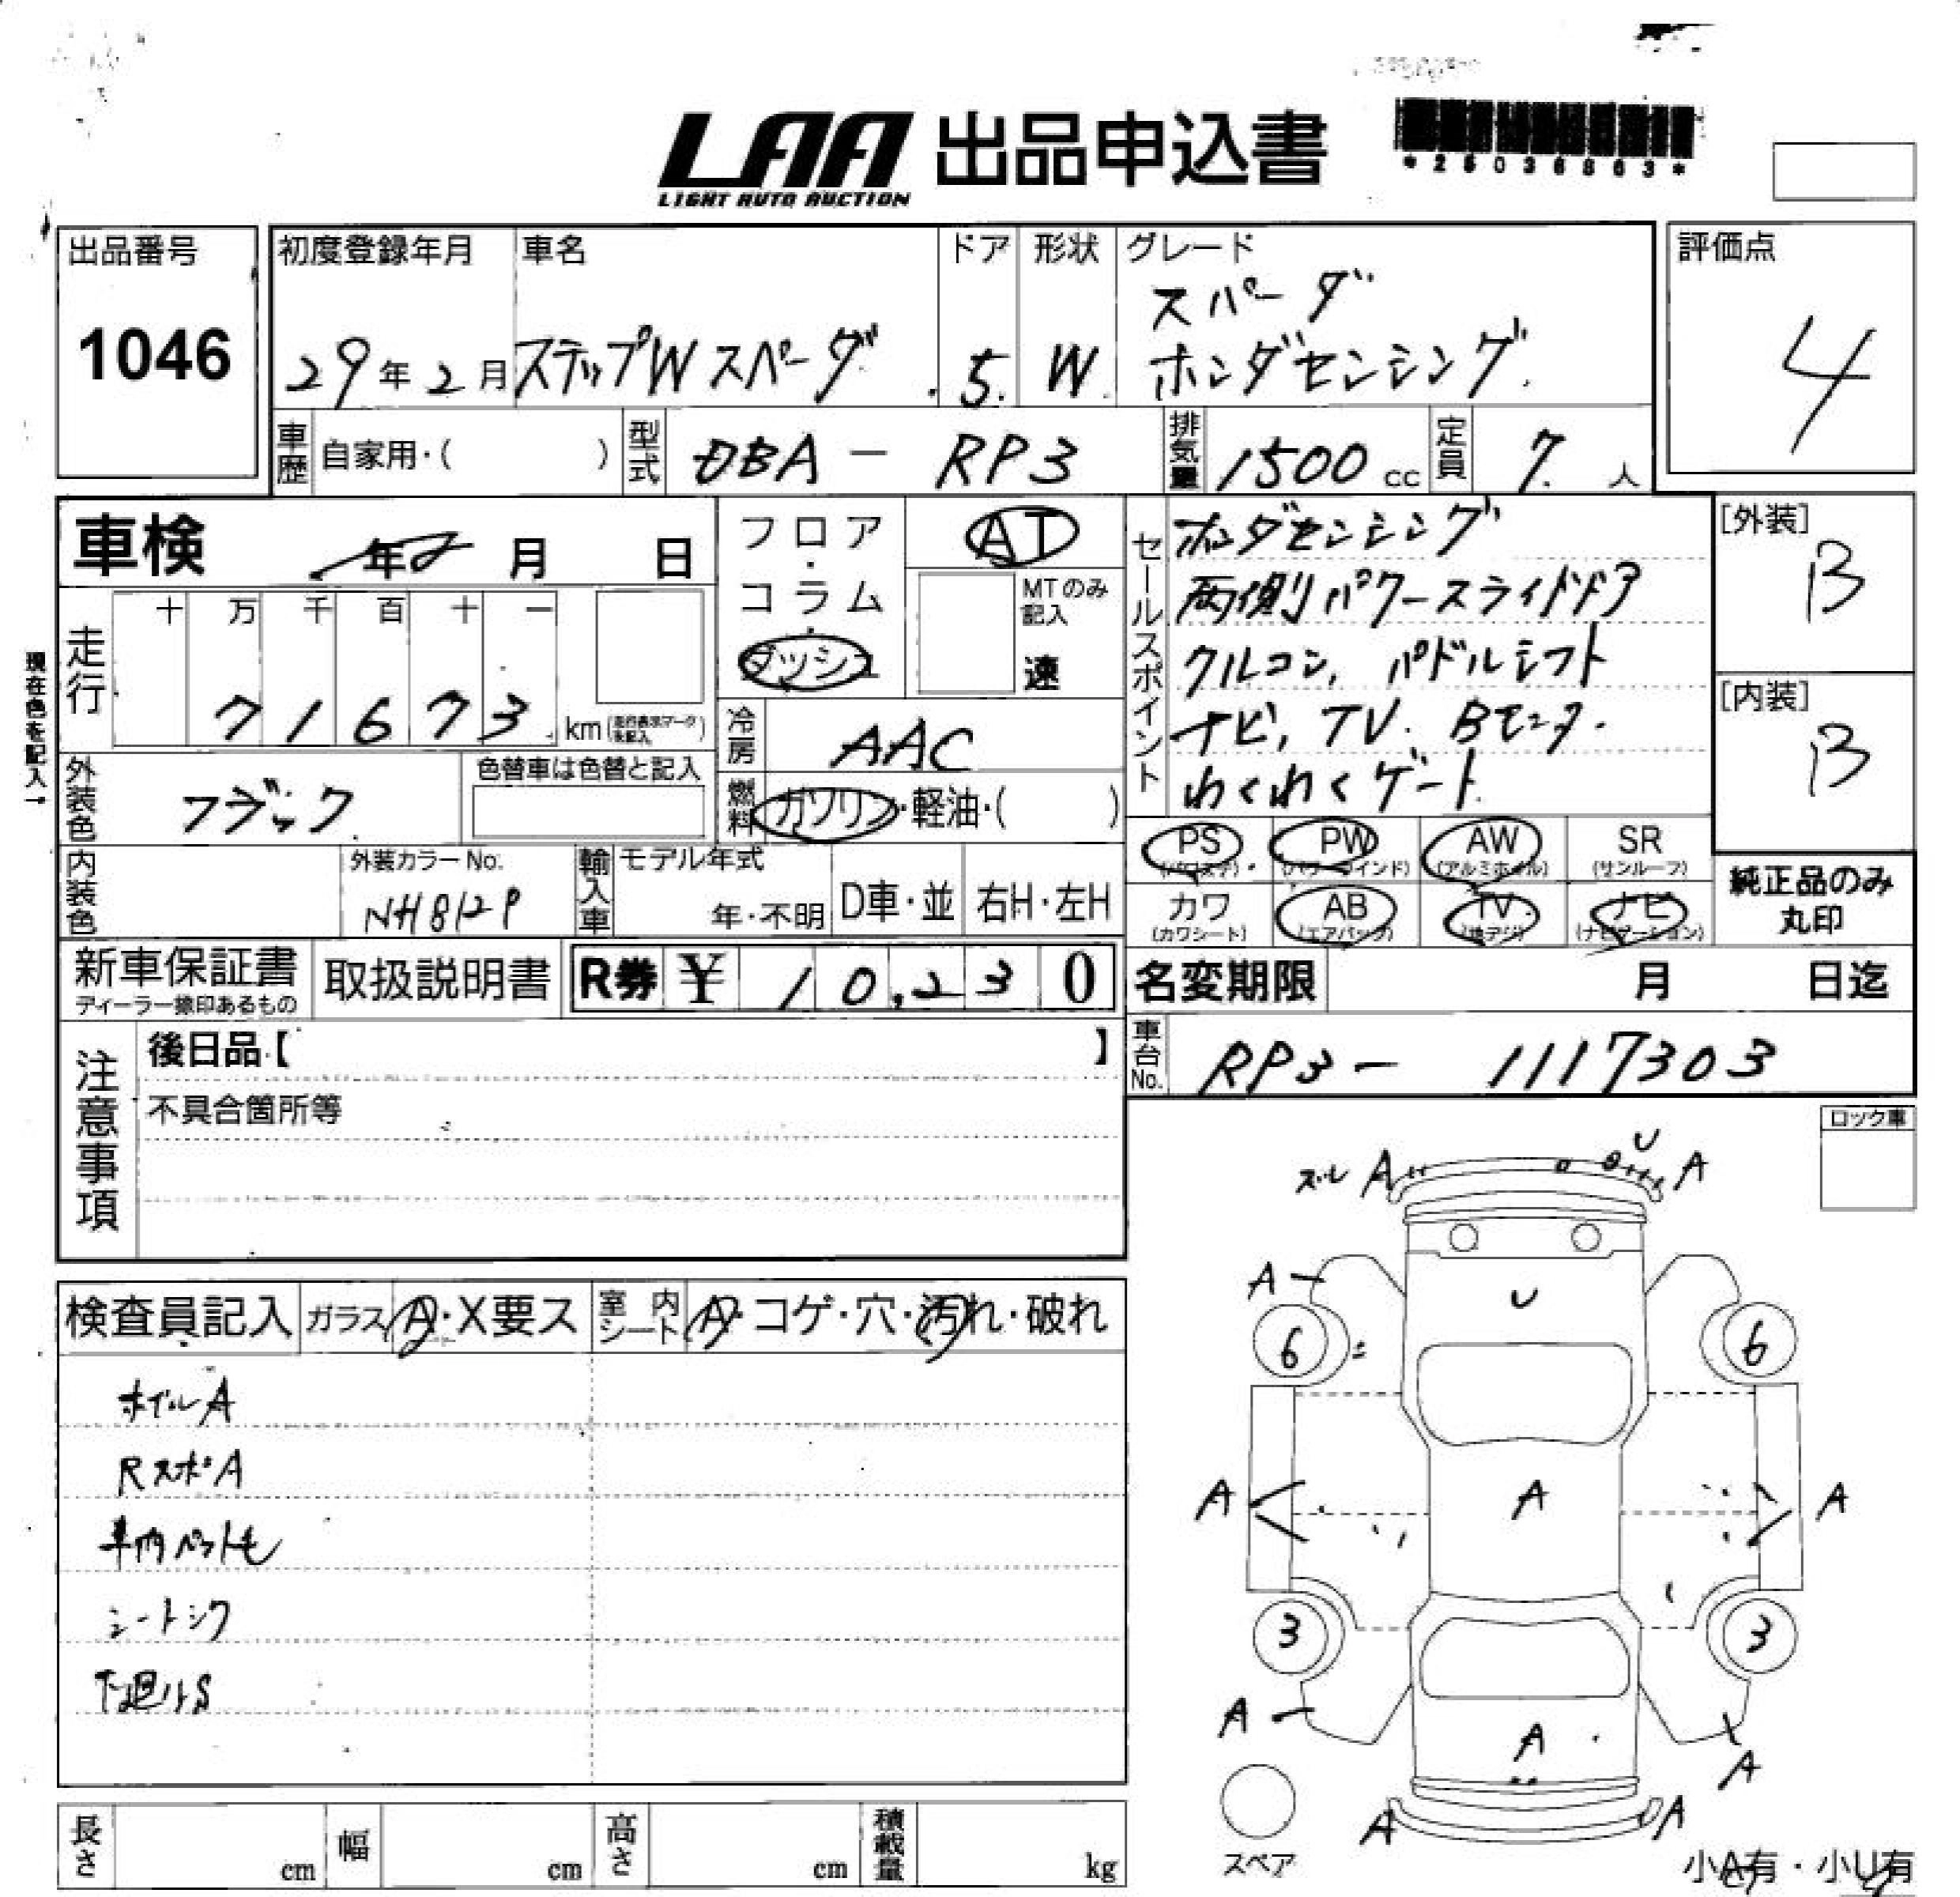 LAA 出品申込書
LIGHT AUTO AUCTION
*26036863*
出品番号
1046
初度登録年月
29年2月
車名
ステップWスパーダ
ドア
5.
形状
W.
グレード
スパーダ
ホンダセンシング.
評価点
4
車歴
自家用・( )
型式
DBA - RP3
排気量
1500 cc
定員
7. 人
車検
年 月 日
フロア
・
コラム
・
ダッシュ
AT
MTのみ
記入
速
走行
十 万 千 百 十 一
7 1 6 7 3 km
現在色を記入→
冷房
AAC
外装色
ブラック.
色替車は色替と記入
燃料
ガソリン・軽油・( )
内装色
外装カラーNo.
NH812P
輸入車
モデル年式
年・不明
D車・並
右H・左H
セールスポイント
ホンダセンシング
両側パワースライドドア
クルコン, パドルシフト
ナビ, TV. Bモニタ.
わくわくゲート
[外装]
B
[内装]
B
PS
(パワステ)
PW
(パワーウインド)
AW
(アルミホイル)
SR
(サンルーフ)
カワ
(カワシート)
AB
(エアバッグ)
TV
(地デジ)
ナビ
(ナビゲーション)
純正品のみ
丸印
新車保証書
ディーラー捺印あるもの
取扱説明書
R券 ¥ 10,230
名変期限
月 日迄
車台No.
RP3- 1117303
注意事項
後日品【 】
不具合箇所等
ロック車
検査員記入
ガラス A・X要ス
室内シート A・コゲ・穴・汚れ・破れ
ホイルA
RスポA
車内ペット毛
シートシワ
下廻りS
ズレ A U A
A U
6 6
A A A
3 3
A A A
A A
スペア
小A有・小U有
長さ cm
幅 cm
高さ cm
積載量 kg